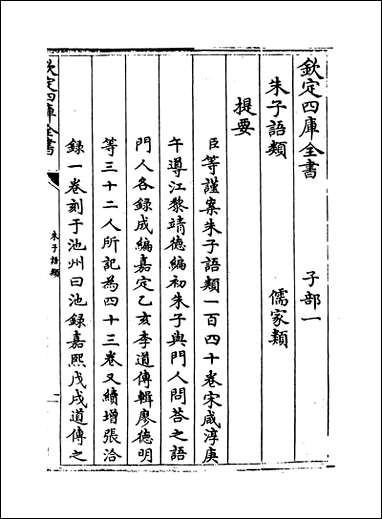 欽定四庫全書　子部一
朱子語類　儒家類
提要
臣等謹案朱子語類一百四十卷宋咸淳庚
午導江黎靖德編初朱子與門人問荅之語
門人各録成編嘉定乙亥李道傳輯廖德明
等三十二人所記為四十三卷又續增張洽
録一卷刻于池州曰池録嘉熙戊戌道傳之
欽定四庫全書
朱子語類
一